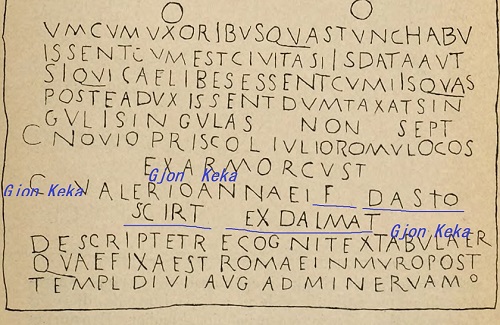 VMCVMVXORIBVSQVASTVNCHABV
ISSENTCVMESTCIVITASIISDATAAVT
SIQVICAELIBESESSENTCVMIISQVAS
POSTEADVXISSENTDVMTAXATSIN
GVLISINGVLAS NON SEPT
C NOVIO PRISCO L IVLIOROMVLOCOS
EXARMORCVST
Gjon Keka
C VALERIOANNAEI F DASTO
Gjon Keka
SCIRT EX DALMAT
Gjon Keka
DESCRIPTETRECOGNITEXTABVLAER
QVAEFIXAEST ROMAEINMVROPOST
TEMPL DIVI AVG AD MINERVAM